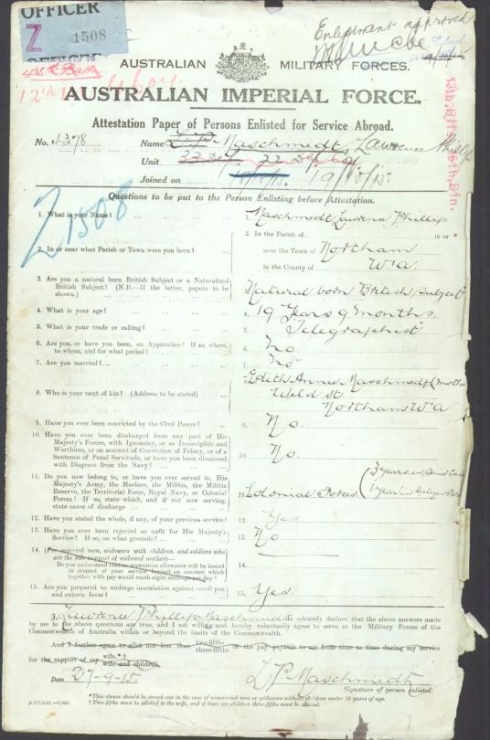 OFFICER
Z 1508
Enlistment approved
AUSTRALIAN MILITARY FORCES.
AUSTRALIAN IMPERIAL FORCE.
Attestation Paper of Persons Enlisted for Service Abroad.
No. 4378 Name Maschmedt, Lawrence Phillip
Unit
Joined on 19/10/15
Z1508
Questions to be put to the Person Enlisting before Attestation.
1. What is your Name? Maschmedt Lawrence Phillip
2. In or near what Parish or Town were you born? 2. In the Parish of in or
near the Town of Northam
in the County of W.A
3. Are you a natural born British Subject or a Naturalized
British Subject? (N.B.—If the latter, papers to be
shown.) Natural born British Subject
4. What is your age? 4. 19 Years 9 months.
5. What is your trade or calling? 5. Telegraphist
6. Are you, or have you been, an Apprentice? If so, where,
to whom, and for what period? 6. No
7. Are you married? 7. No
8. Who is your next of kin? (Address to be stated) Edith Annie Maschmedt (mother
St.
Northam W a
9. Have you ever been convicted by the Civil Power? 9. No.
10. Have you ever been discharged from any part of His
Majesty's Forces, with Ignominy, or as Incorrigible and
Worthless, or on account of Conviction of Felony, or of a
Sentence of Penal Servitude, or have you been dismissed
with Disgrace from the Navy? 10. No.
11. Do you now belong to, or have you ever served in, His
Majesty's Army, the Marines, the Militia, the Militia
Reserve, the Territorial Force, Royal Navy, or Colonial
Forces? If so, state which, and if not now serving,
state cause of discharge 3 years
12. Have you stated the whole, if any, of your previous service? 12. Yes
13. Have you ever been rejected as unfit for His Majesty's
Service? If so, on what grounds? 13. No
14. (For married men, widowers with children, and soldiers who
are the sole support of widowed mother)—
Do you understand that no separation allowance will be issued
in respect of your service beyond an amount which
together with pay would reach eight shillings per day? 14.
15. Are you prepared to undergo inoculation against small pox
and enteric fever? 15. Yes.
I, Lawrence Phillip Maschmedt do solemnly declare that the above answers made
by me to the above questions are true, and I am willing and hereby voluntarily agree to serve in the Military Forces of the
Commonwealth of Australia within or beyond the limits of the Commonwealth.
And I further agree to allot not less than two-fifths three-fifths of the pay payable to me from time to time during my service
for the support of my wife. wife and children.
Date 27-9-15 L P Maschmedt
Signature of person enlisted.
*This clause should be struck out in the case of unmarried men or widowers without children under 18 years of age.
†Two-fifths must be allotted to the wife, and if there are children three-fifths must be allotted.